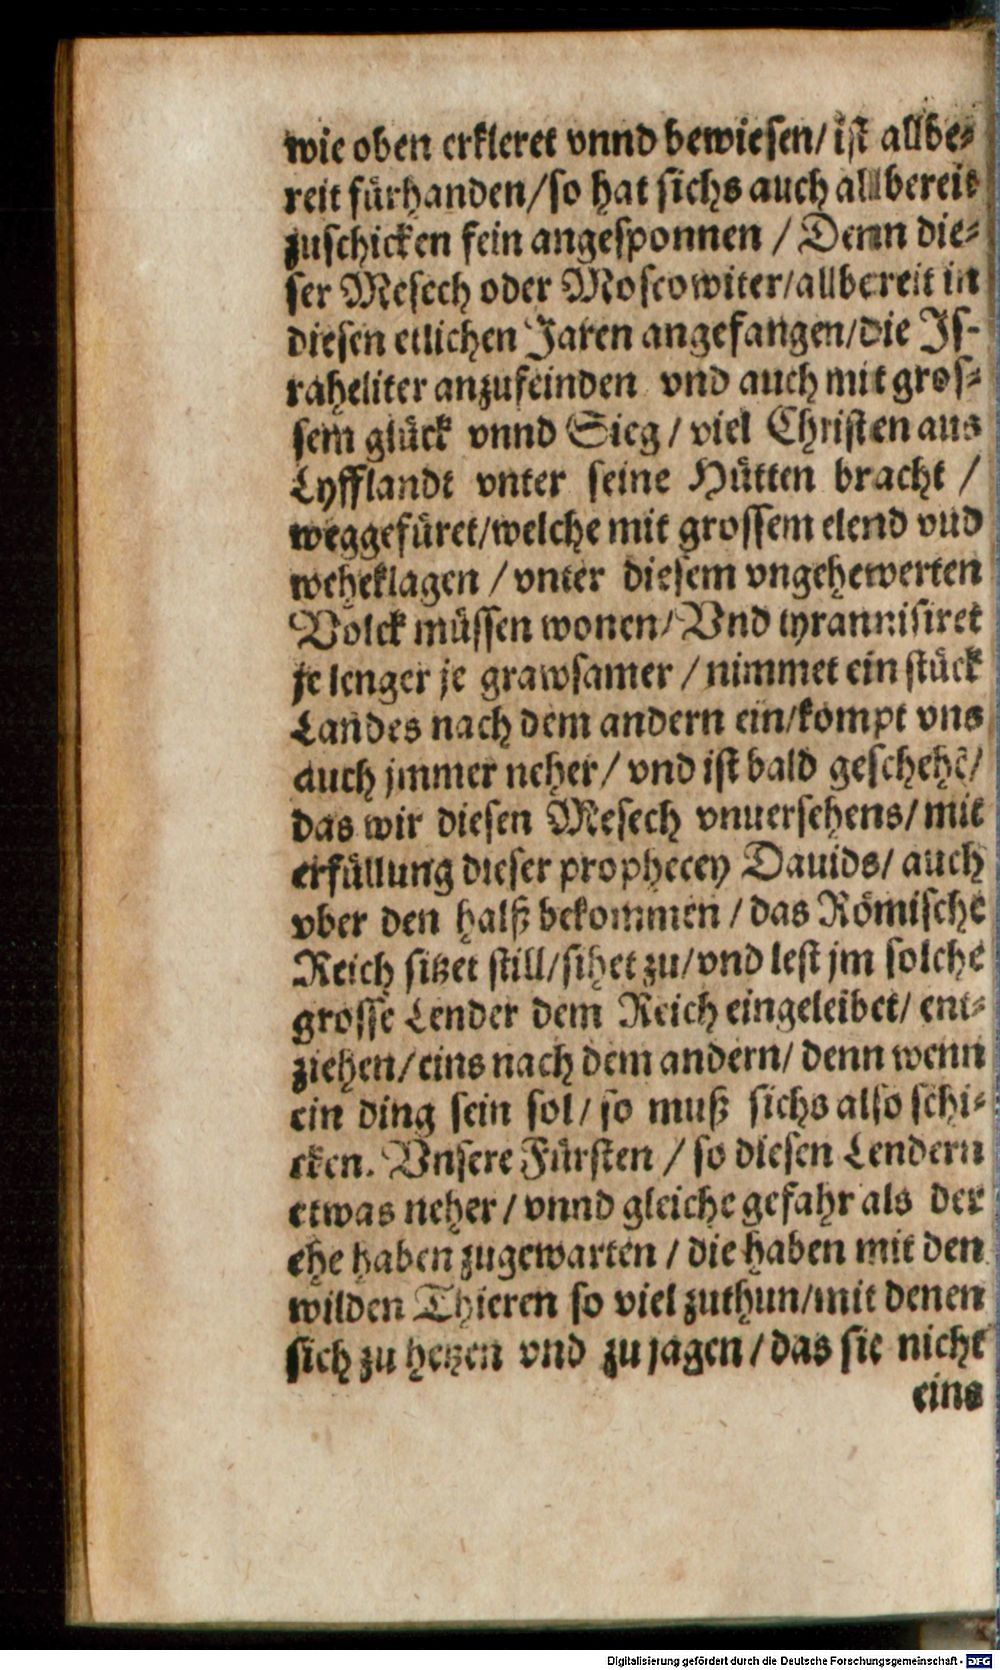 wie oben erkleret vnnd bewiesen/ ist allbe-
reit fürhanden/so hat sichs auch allbereit
zuschicken fein angesponnen / Denn die-
ser Mesech oder Moscowiter/allbereit in
diesen etlichen Jaren angefangen/die Is-
raheliter anzufeinden vnd auch mit gros-
sem glück vnnd Sieg / viel Christen aus
Lyfflandt vnter seine Hütten bracht /
weggefüret/welche mit grossem elend vnd
weheklagen / vnter diesem vngehewerten
Volck müssen wonen/ Vnd tyrannisiret
je lenger je grawsamer / nimmet ein stück
Landes nach dem andern ein/kompt vns
auch jmmer neher/ vnd ist bald geschehẽ/
das wir diesen Mesech vnuersehens/ mit
erfüllung dieser prophecey Dauids/ auch
vber den halß bekommen / das Römische
Reich sitzet still/sihet zu/vnd lest jm solche
grosse Lender dem Reich eingeleibet/ ent-
ziehen/ eins nach dem andern/ denn wenn
ein ding sein sol/ so muß sichs also schi-
cken. Vnsere Fürsten / so diesen Lendern
etwas neher / vnnd gleiche gefahr als der
ehe haben zugewarten / die haben mit den
wilden Thieren so viel zuthun/mit denen
sich zu hetzen vnd zu jagen / das sie nicht
eins
Digitalisierung gefördert durch die Deutsche Forschungsgemeinschaft - DFG